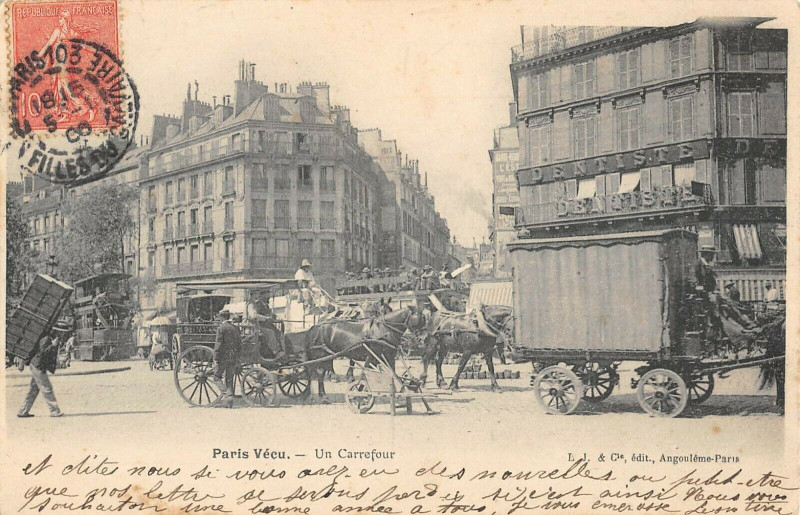 RÉPUBLIQUE FRANÇAISE
10
PARIS 103
FILLES DU CALVAIRE
DENTISTE
DENTISTE
DE
Paris Vécu. — Un Carrefour
L. J. & Cie, édit., Angoulême-Paris
et dites nous si vous avez eu des nouvelles ou peut-etre
que nos lettre se serons perdus si s'est ainsi Nous vous
souhaiton une bonne année a tous, je vous emerasse